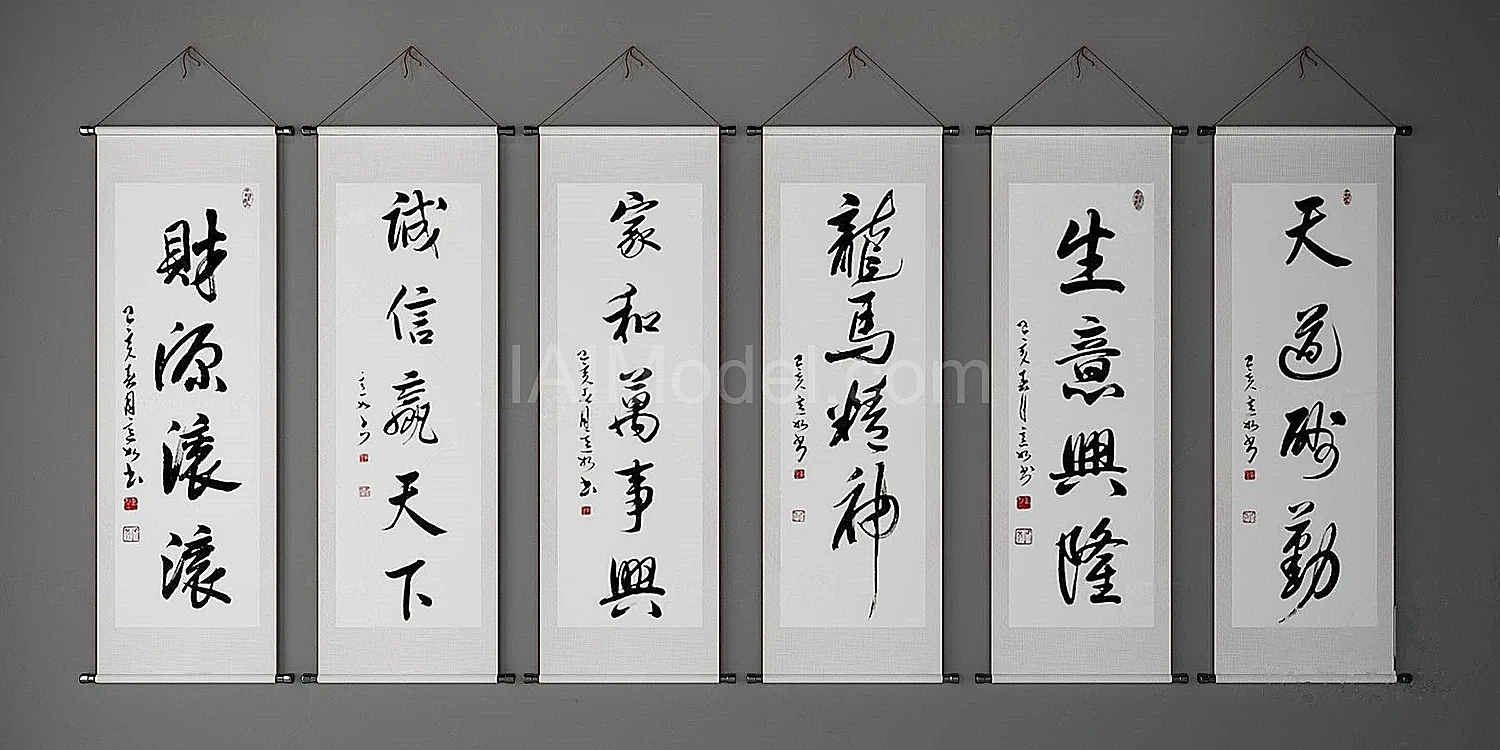 財源滚滚
己亥春月
誠信贏天下
家和萬事興
己亥春月
龍馬精神
己亥
生意興隆
己亥春月
天道酬勤
己亥
IAIModel.com